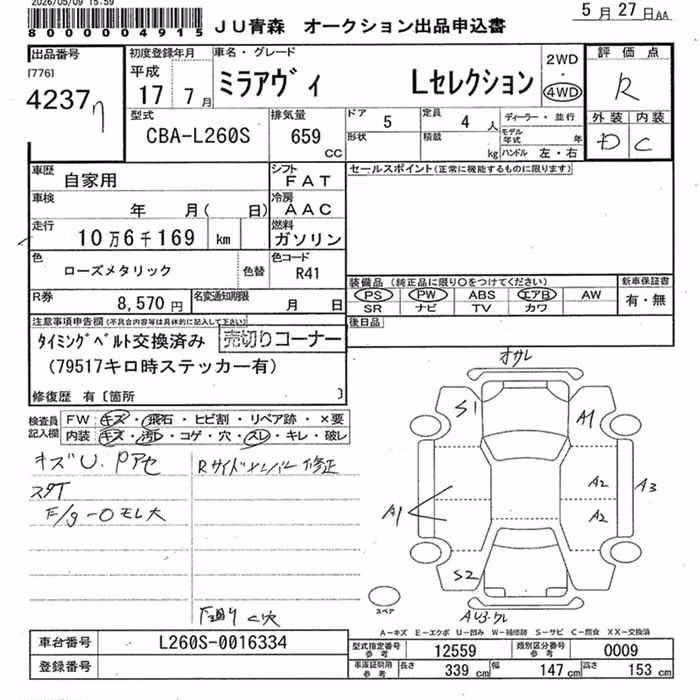 2026/05/09 15:59
8000004915
JU青森 オークション出品申込書
5月27日AA
出品番号
[776]
4237
初度登録年月
平成
17 7月
車名・グレード
ミラアヴィ Lセレクション
2WD
・
4WD
評価点
R
外装 内装
D C
型式
CBA-L260S
排気量
659
CC
ドア
5
定員
4 人
形状
積載
kg
ディーラー・並行
モデル年式 年
ハンドル 左・右
車歴
自家用
シフト
FAT
セールスポイント(正常に機能するものに限ります)
車検
年 月( 日)
冷房
AAC
走行
10万6千169 km
燃料
ガソリン
色
ローズメタリック
色替
色コード
R41
装備品(純正品に限り○をつけてください)
新車保証書
PS PW ABS エアB AW
SR ナビ TV カワ
有・無
R券
8,570円
名変通知期限
月 日
後日品
注意事項申告欄(不具合内容等は具体的に記入して下さい)
タイミングベルト交換済み 売切りコーナー
(79517キロ時ステッカー有)
修復歴 有〔箇所 〕
検査員記入欄
FW キズ・飛石・ヒビ割・リペア跡・×要
内装 キズ・汚れ・コゲ・穴・スレ・キレ・破レ
キズU.Pアセ
スタT
E/g-Oモレ大
Rサイドメンバー修正
下廻りC穴
オサレ
S1
A1
A2
A2
A3
A1
S2
スペア
A-キズ E-エクボ U-凹み W-補修跡 S-サビ C-腐食 XX-交換済
車台番号
L260S-0016334
登録番号
型式指定番号
参考
12559
類別区分番号
参考
0009
車庫証明用
参考
長さ
339 cm
幅
147 cm
高さ
153 cm